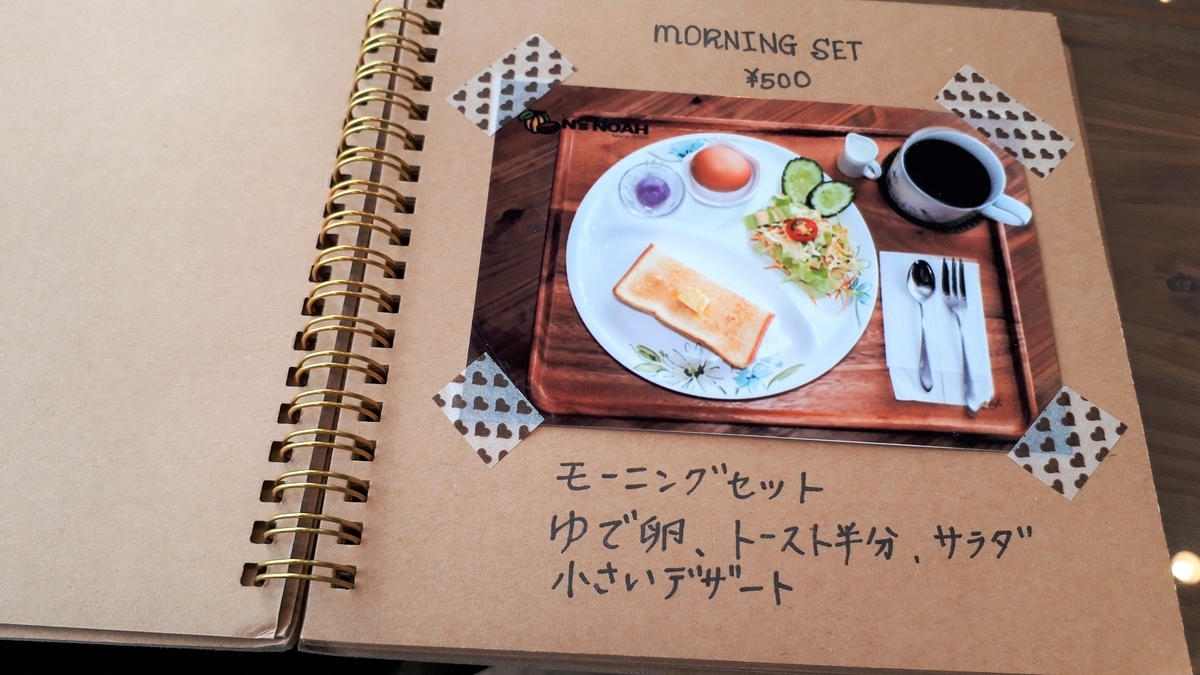 MORNING SET
¥500
N's NOAH
モーニングセット
ゆで卵、トースト半分、サラダ
小さいデザート